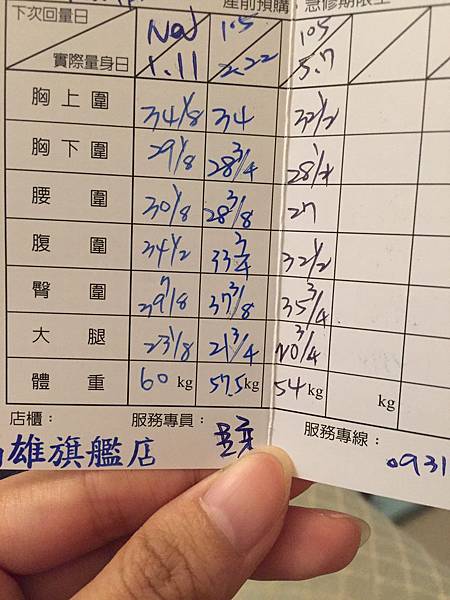 產前預購,急修期限至
下次回量日 Nov 105 105
實際量身日 1.11 2.22 5.7
胸上圍 34 1/8 34 32 1/2
胸下圍 29 1/8 28 3/4 28 1/4
腰圍 30 1/8 28 3/8 27
腹圍 34 1/2 33 3/4 32 1/2
臀圍 39 7/8 37 3/8 35 3/4
大腿 23 1/8 21 3/4 20 3/4
體重 60 kg 57.5 kg 54 kg kg
店櫃: 服務專員: 服務專線:
雄旗艦店 0931